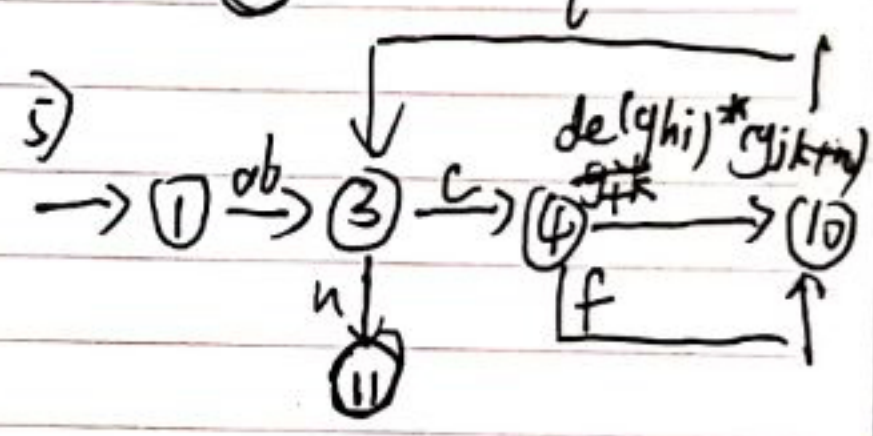 l
5)
de(ghi)*(gjk+m)
→ 1 ab → 3 c → 4 → 10
n f
11